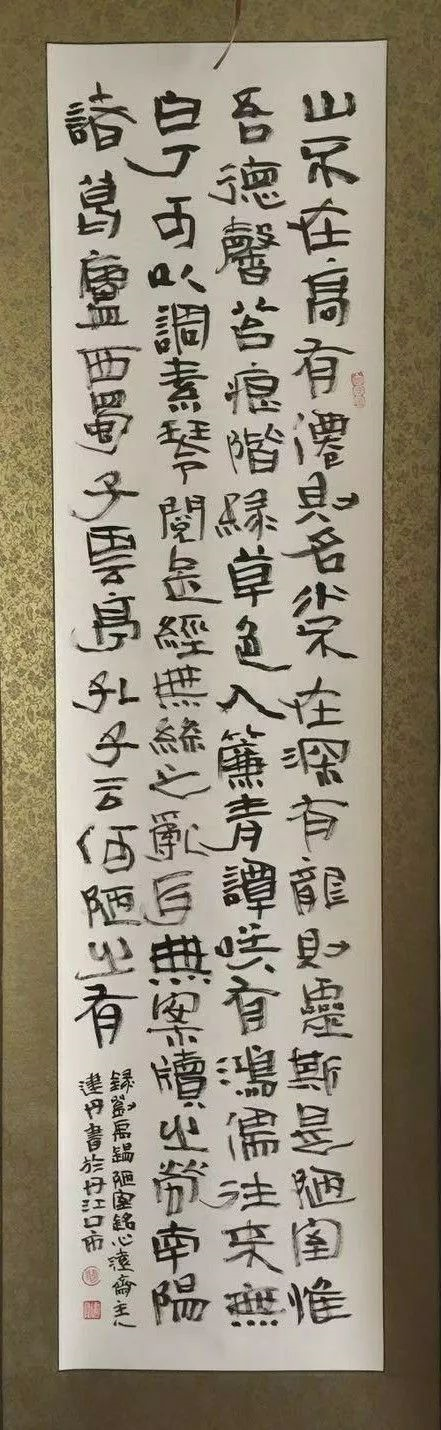 山不在高有僊則名水不在深有龍則靈斯是陋室惟
吾德馨苔痕階緑草色入簾青譚咲有鴻儒往来無
白丁可以調素琴閱金經無絲之亂耳無案牘之勞南陽
諸葛廬西蜀子雲亭孔子云何陋之有
録劉禹錫陋室銘心遠齋主人
建丹書於丹江口市